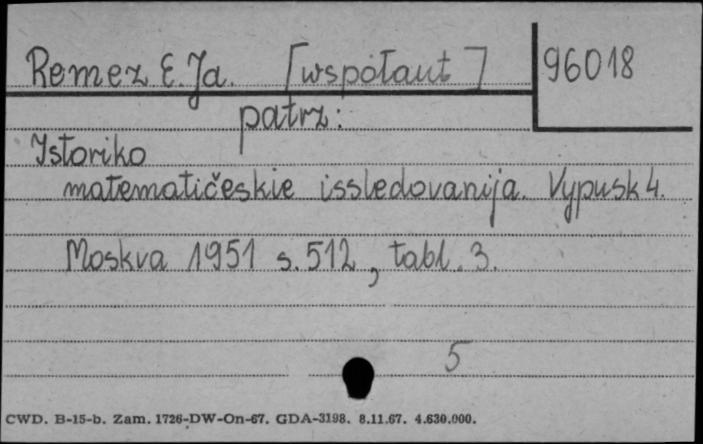 Remez E. Ja. [współaut] 96018
patrz:
Istoriko
matematičeskie issledovanija. Vypusk 4.
Moskva 1951 s. 512, tabl. 3.
5
CWD. B-15-b. Zam. 1726-DW-On-67. GDA-3198. 8.11.67. 4.630.000.